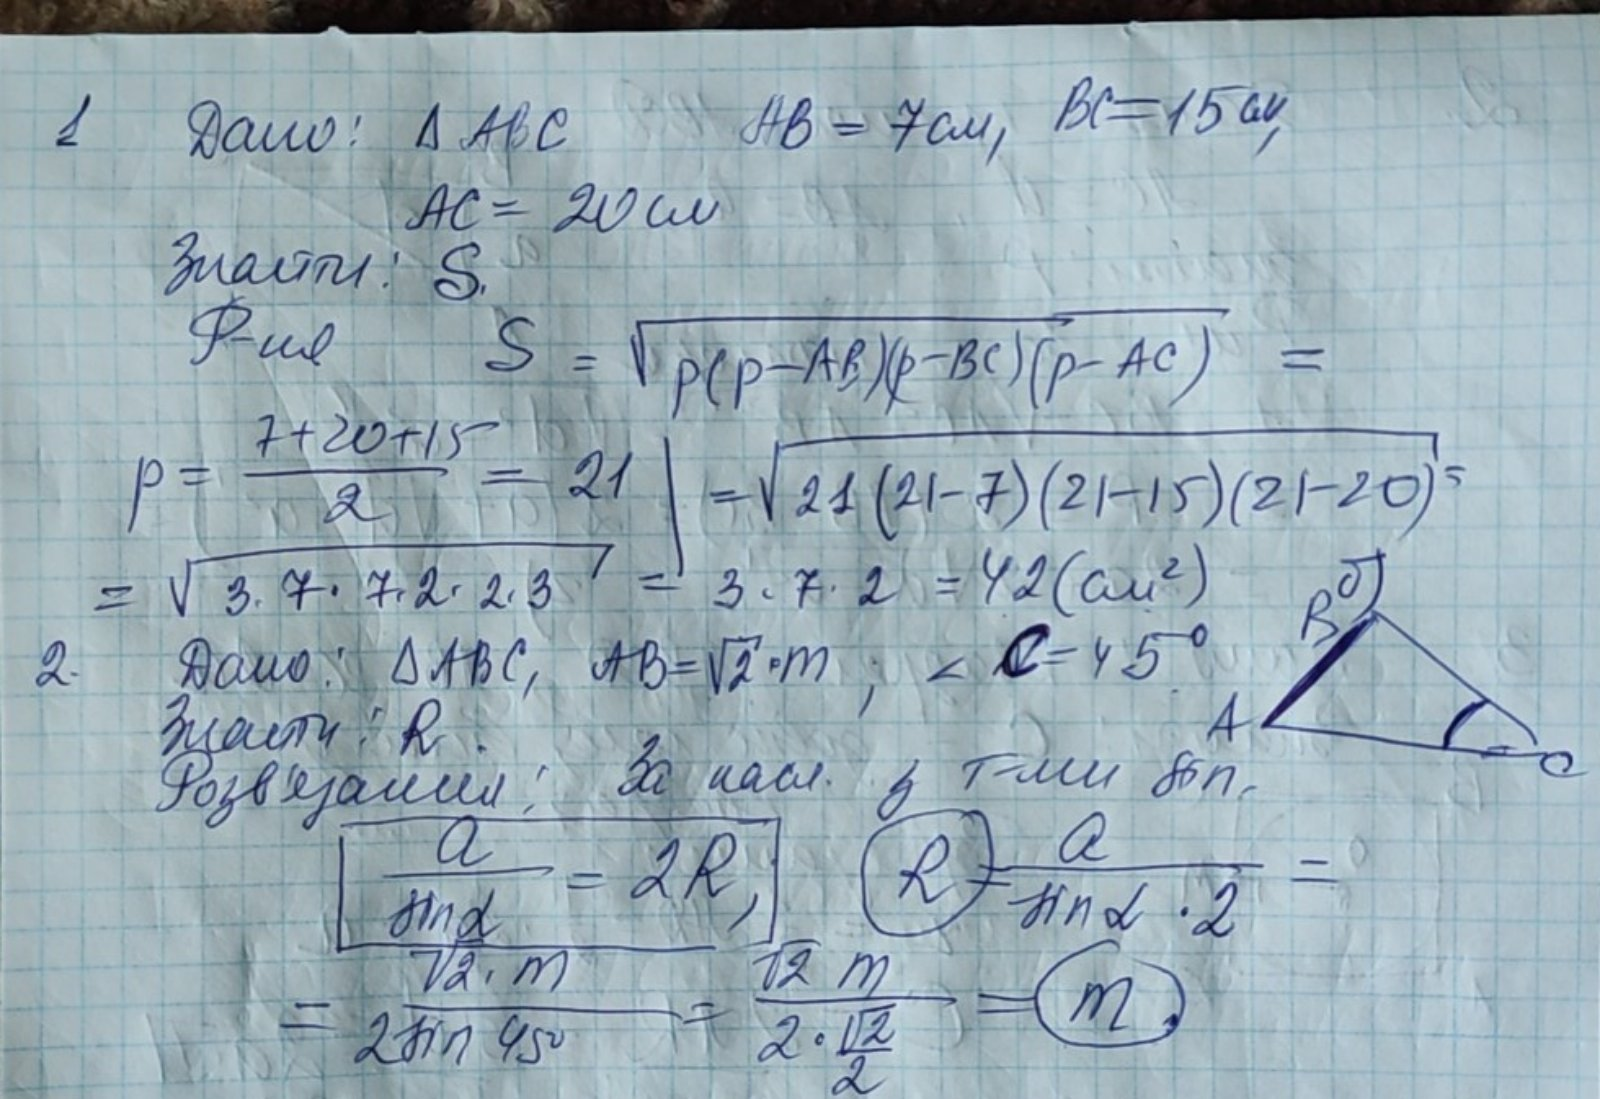 1 Дано: Δ ABC AB = 7см, BC = 15см,
AC = 20 см
Знайти: S.
Ф-ия S = √(p(p-AB)(p-BC)(p-AC)) =
p = (7+20+15)/2 = 21 | = √(21(21-7)(21-15)(21-20)) =
= √(3·7·7·2·2·3) = 3·7·2 = 42(см²)
2. Дано: ΔABC, AB = √2·m; ∠ C = 45°
B
Знайти: R.
A
C
Розв'язання: За насл. з т-ми sin.
a/sinα = 2R, R = a/(sinα·2) =
= (√2·m)/(2sin 45°) = (√2 m)/(2·√2/2) = m.